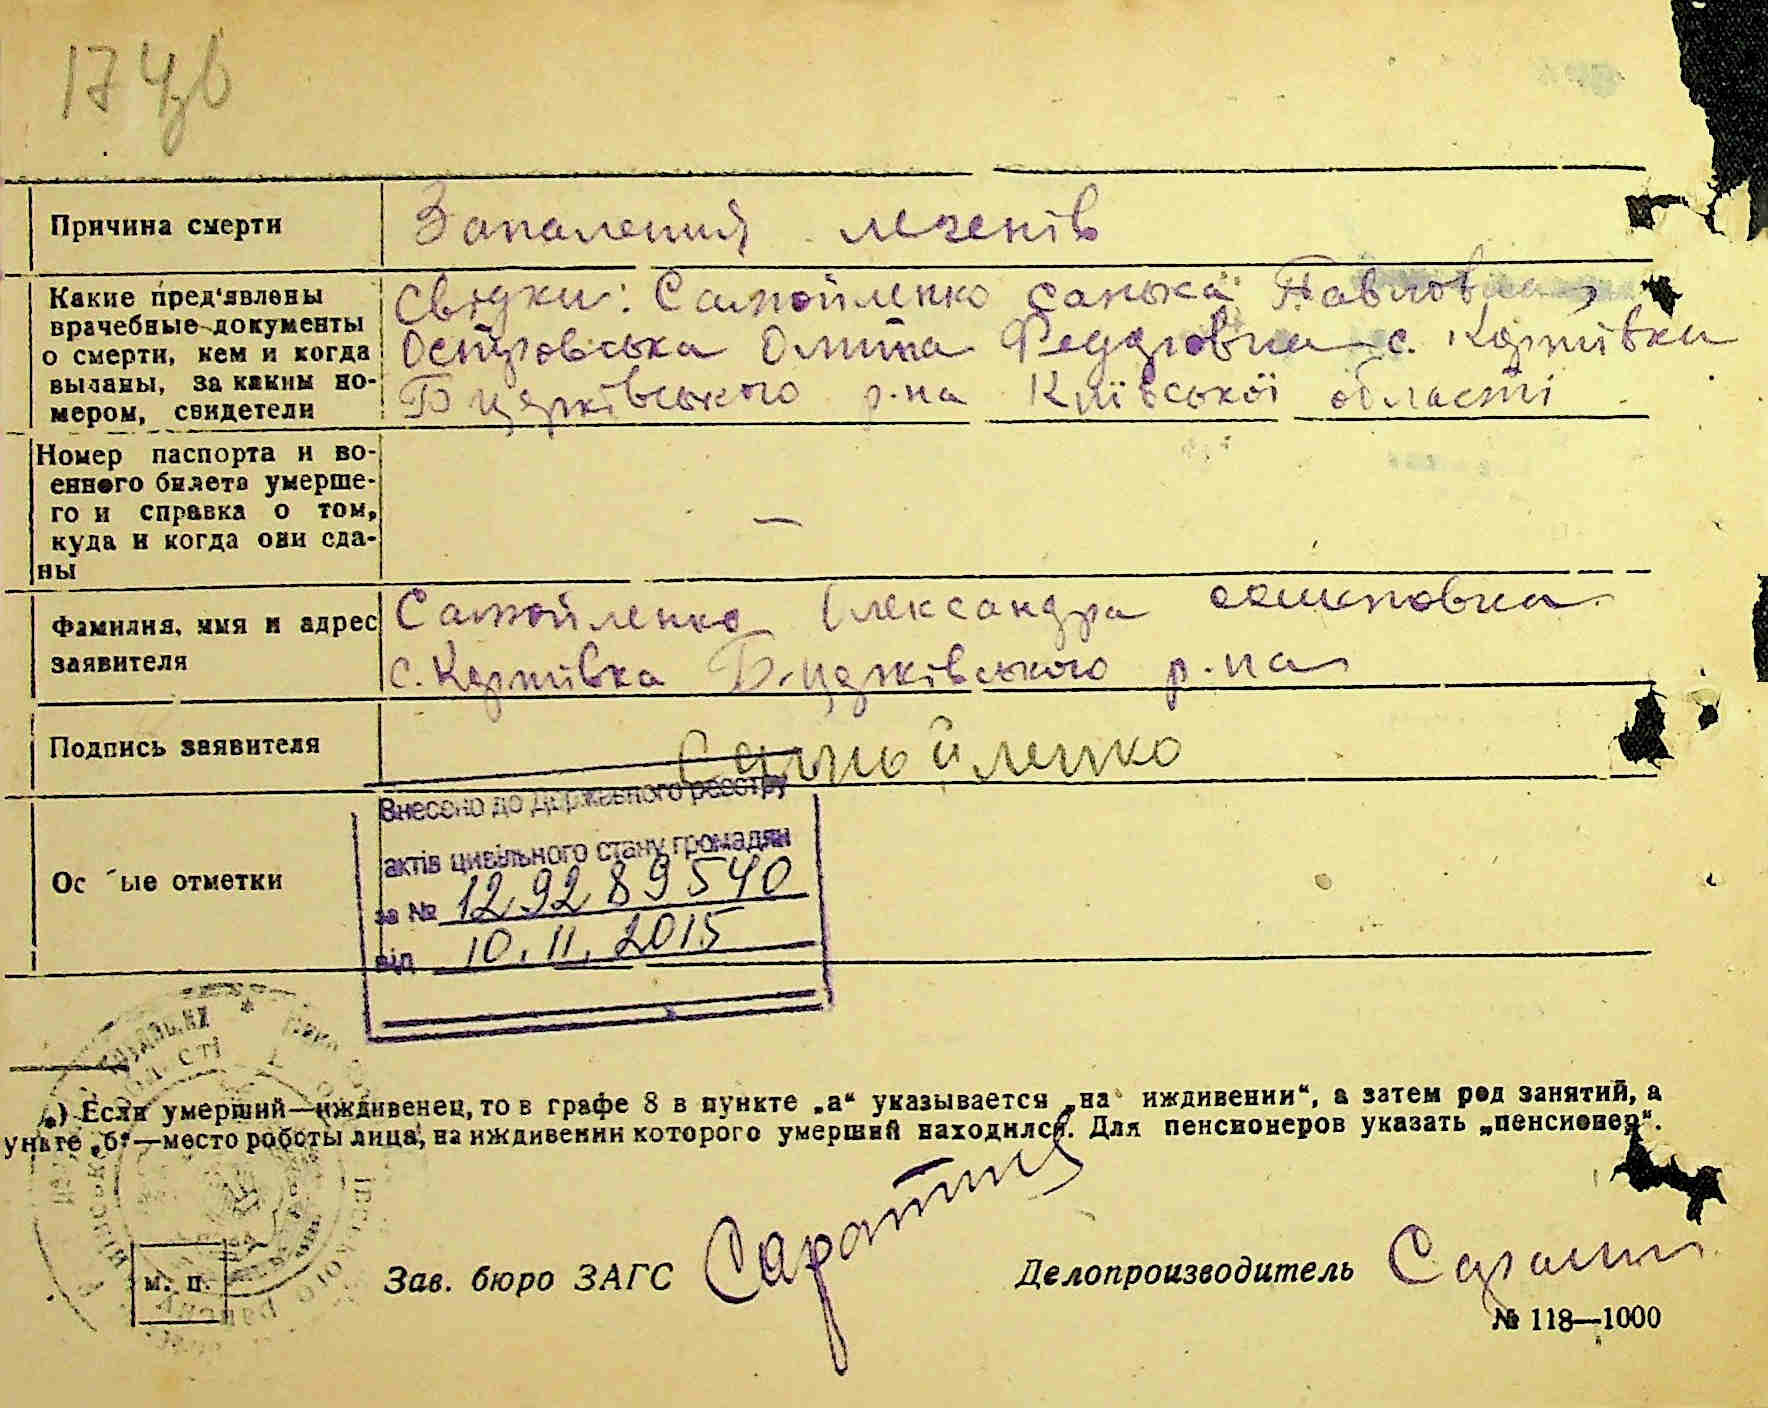 Причина смерти
Запалений легенів
Какие пред'явлены
врачебные документы
о смерти, кем и когда
выданы, за каким но-
мером, свидетели
Свідки: Самойленко Санька Павловна,
Островська Федоровна с.
Б церківського р-на Київської області
Номер паспорта и во-
енного билета умерше-
го и справка о том,
куда и когда они сда-
ны
—
Фамилия, имя и адрес
заявителя
Самойленко Александра
с. Б. церківського р-на
Подпись заявителя
Самойленко
Ос ые отметки
Внесено до Державного реєстру
актів цивільного стану громадян
за № 1292 89540
від 10.11.2015
*) Если умерший—иждивенец, то в графе 8 в пункте „а“ указывается „на иждивении“, а затем род занятий, а
ункте „б“—место работы лица, на иждивении которого умерший находился. Для пенсионеров указать „пенсионер“.
м. п.
Зав. бюро ЗАГС
Делопроизводитель
№ 118—1000